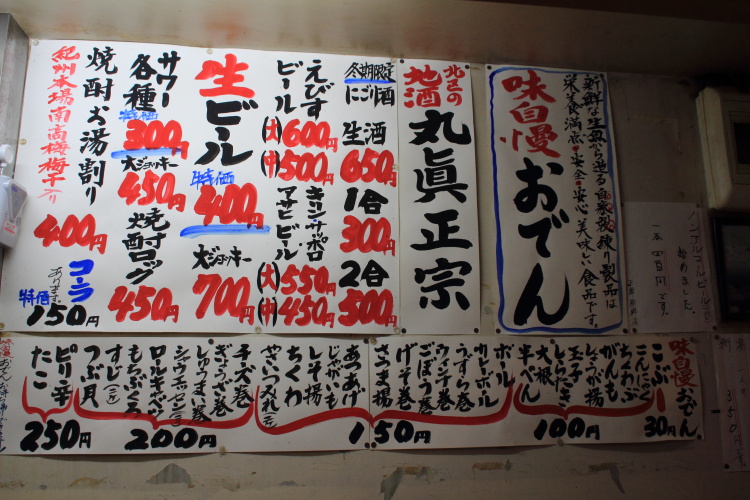 味自慢
おでん
新鮮な生魚から造る自家製練り製品は
栄養満点・安全・安心・美味しい食品です。
北区の
地酒
丸眞正宗
冬期限定
にごり酒
生酒
650円
1合
300円
2合
500円
えびす
ビール
(大)600円
(中)500円
キリン・サッポロ
アサヒビール
(大)550円
(中)450円
生ビール
特価
400円
大ジョッキー
700円
サワー
各種
特価
300円
大ジョッキー
450円
焼酎ロック
450円
焼酎お湯割り
紀州本場南高梅梅干入り
400円
コーラ
あります。
特価
150円
ノンアルコールビール
始めました。
一本 四百円です。
味自慢おでん
こぶ
30円
こんにゃく
ちくわぶ
がんも
しょうが揚
しらたき
玉子
大根
半ぺん
100円
ボール
カレーボール
うずら巻
ウィンナ巻
ごぼう巻
げそ巻
さつま揚
あつあげ
じゃがいも
しそ揚
ちくわ
やさいつみれ
150円
チーズ巻
ぎょうざ巻
しゅうまい巻
ロールキャベツ
もちぶくろ
すじ
つぶ貝
200円
ピリ辛
たこ
250円